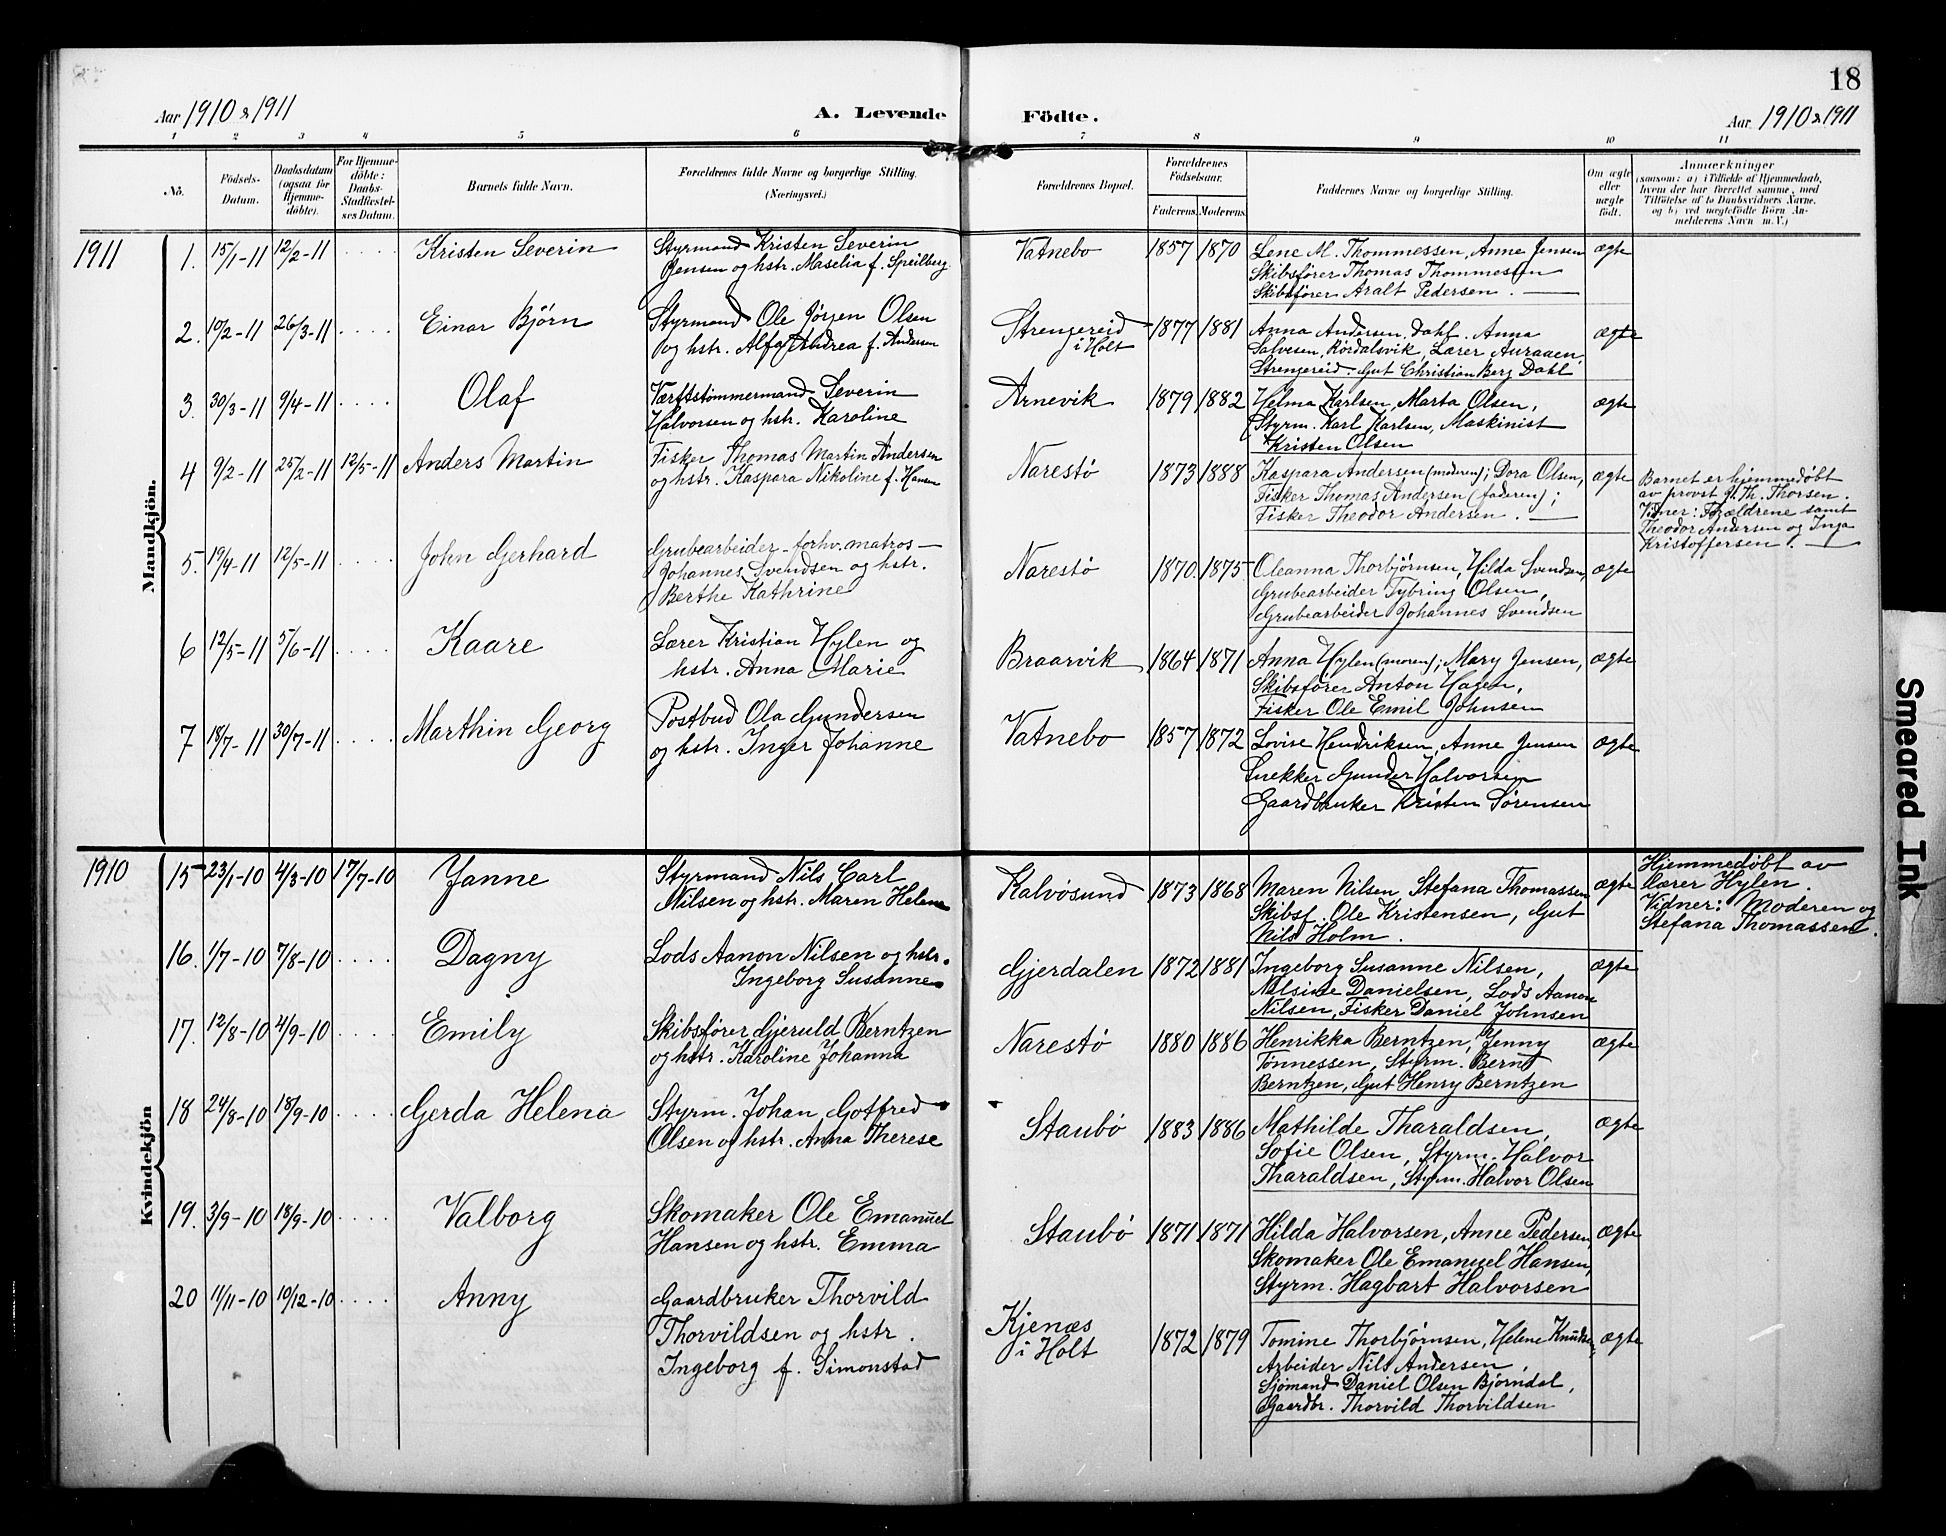 18
Aar 1910 & 1911
A. Levende Födte.
Aar 1910 & 1911
1 2 3 4 5 6 7 8 9 10 11
No.
Födsels-Datum.
Daabsdatum (ogsaa for Hjemmedöbte).
For Hjemmedöbte: Daabs-Stadfæstelses Datum.
Barnets fulde Navn.
Forældrenes fulde Navne og borgerlige Stilling. (Næringsvei.)
Forældrenes Bopæl.
Forældrenes Födselsaar.
Faderens. Moderens.
Faddernes Navne og borgerlige Stilling.
Om ægte eller uægte födt.
Anmærkninger
(saasom: a) i Tilfælde af Hjemmedaab, hvem der har forrettet samme, med Tilföielse af to Daabsvidners Navne. og b) ved uægtefödte Börn Anmelderens Navn m. V.)
1911
Mandkjön.
1. 15/1-11 12/2-11 .... Kristen Severin
Styrmand Kristen Severin
Jensen og hstr. Maselia f. Speilberg.
Vatnebo 1857 1870
Lene M. Thommessen, Anne Jensen
Skibsfører Thomas Thommessen
Skibsfører Aralt Pedersen.
ægte
2. 10/2-11 26/3-11 .... Einar Bjørn
Styrmand Ole Jørgen Olsen
og hstr. Alfa Andrea f. Andersen
Strengereid
i Holt
1877 1881
Anna Andersen, Dahl. Anna
Salvesen, Rørdalsvik, Lærer Auraaen,
Strengereid. Gut Christian Berg Dahl
ægte
3. 30/3-11 9/4-11 .... Olaf
Værftstømmermand Severin
Halvorsen og hstr. Karoline
Arnevik 1879 1882
Helma Karlsen, Marta Olsen,
Styrm. Karl Karlsen, Maskinist
Kristen Olsen
ægte
4 9/2-11 25/2-11 12/5-11 Anders Martin
Fisker Thomas Martin Andersen
og hstr. Kaspara Nikoline f. Hansen
Narestø 1873 1888
Kaspara Andersen (moderen); Dora Olsen,
Fisker Thomas Andersen (faderen);
Fisker Theodor Andersen.
ægte
Barnet er hjemmedøbt
av provst J. Th. Thorsen.
Vidner: Forældrene samt
Theodor Andersen og Inga
Kristoffersen.
5. 19/4-11 12/5-11 .... John Gerhard
Grubearbeider – forhv. matros –
Johannes Svendsen og hstr.
Berthe Kathrine
Narestø 1870 1875
Oleanna Thorbjørnsen, Hilda Svendsen,
Grubearbeider Tybring Olsen,
Grubearbeider Johannes Svendsen
ægte
6 12/5-11 5/6-11 .... Kaare
Lærer Kristian Hylen og
hstr. Anna Marie
Braarvik 1864 1871
Anna Hylen (moren); Mary Jensen,
Skibsfører Anton Hagen,
Fisker Ole Emil Johnsen
ægte
7 18/7-11 30/7-11 .... Marthin Georg
Postbud Ola Gundersen
og hstr. Inger Johanne
Vatnebo 1857 1872
Lovise Hendriksen, Anne Jensen
Snekker Gunder Halvorsen
Gaardbruker Kristen Sørensen
ægte
1910
Kvindekjön
15 23/1-10 4/3-10 17/7-10 Janne
Styrmand Nils Carl
Nilsen og hstr. Maren Helene
Kalvøsund 1873 1868
Maren Nilsen, Stefana Thomassen
Skibsf. Ole Kristensen, Gut
Nils Holm.
ægte
Hjemmedøbt av
lærer Hylen.
Vidner: Moderen og
Stefana Thomassen.
16. 1/7-10 7/8-10 Dagny
Lods Aanon Nilsen og hstr.
Ingeborg Susanne
Gjerdalen 1872 1881
Ingeborg Susanne Nilsen,
Nilsine Danielsen, Lods Aanon
Nilsen, Fisker Daniel Johnsen
ægte
17. 12/8-10 4/9-10 .... Emily
Skibsfører Gjeruld Berntzen
og hstr. Karoline Johanna
Narestø 1880 1886
Henrikka Berntzen, Jenny
Tønnessen, Styrm. Bernt
Berntzen, Gut Henry Berntzen
ægte
18 24/8-10 18/9-10 .... Gerda Helena
Styrm. Johan Gotfred
Olsen og hstr. Anna Therese
Staubø 1883 1886
Mathilde Tharaldsen,
Sofie Olsen, Styrm. Halvor
Tharaldsen, Styrm. Halvor Olsen
ægte
19. 3/9-10 18/9-10 .... Valborg
Skomaker Ole Emanuel
Hansen og hstr. Emma
Staubø 1871 1871
Hilda Halvorsen, Anne Pedersen,
Skomaker Ole Emanuel Hansen,
Styrm. Hagbart Halvorsen
ægte
20 11/11-10 10/12-10 .... Anny
Gaardbruker Thorvild
Thorvildsen og hstr.
Ingeborg f. Simonstad
Kjenæs
i Holt
1872 1879
Tomine Thorbjørnsen, Helene Knudsen,
Arbeider Nils Andersen,
Sjømand Daniel Olsen Bjørndal,
Gaardbr. Thorvild Thorvildsen
ægte
Smeared Ink